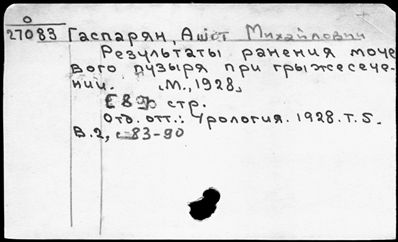 о
27083 Гаспарян, Ашот Михайлович
Результаты ранения моче
вого пузыря при грыжесече-
нии. М., 1928.
[8] стр.
Отд. отт.: Урология. 1928. Т. 5.
В. 2, с 83-90